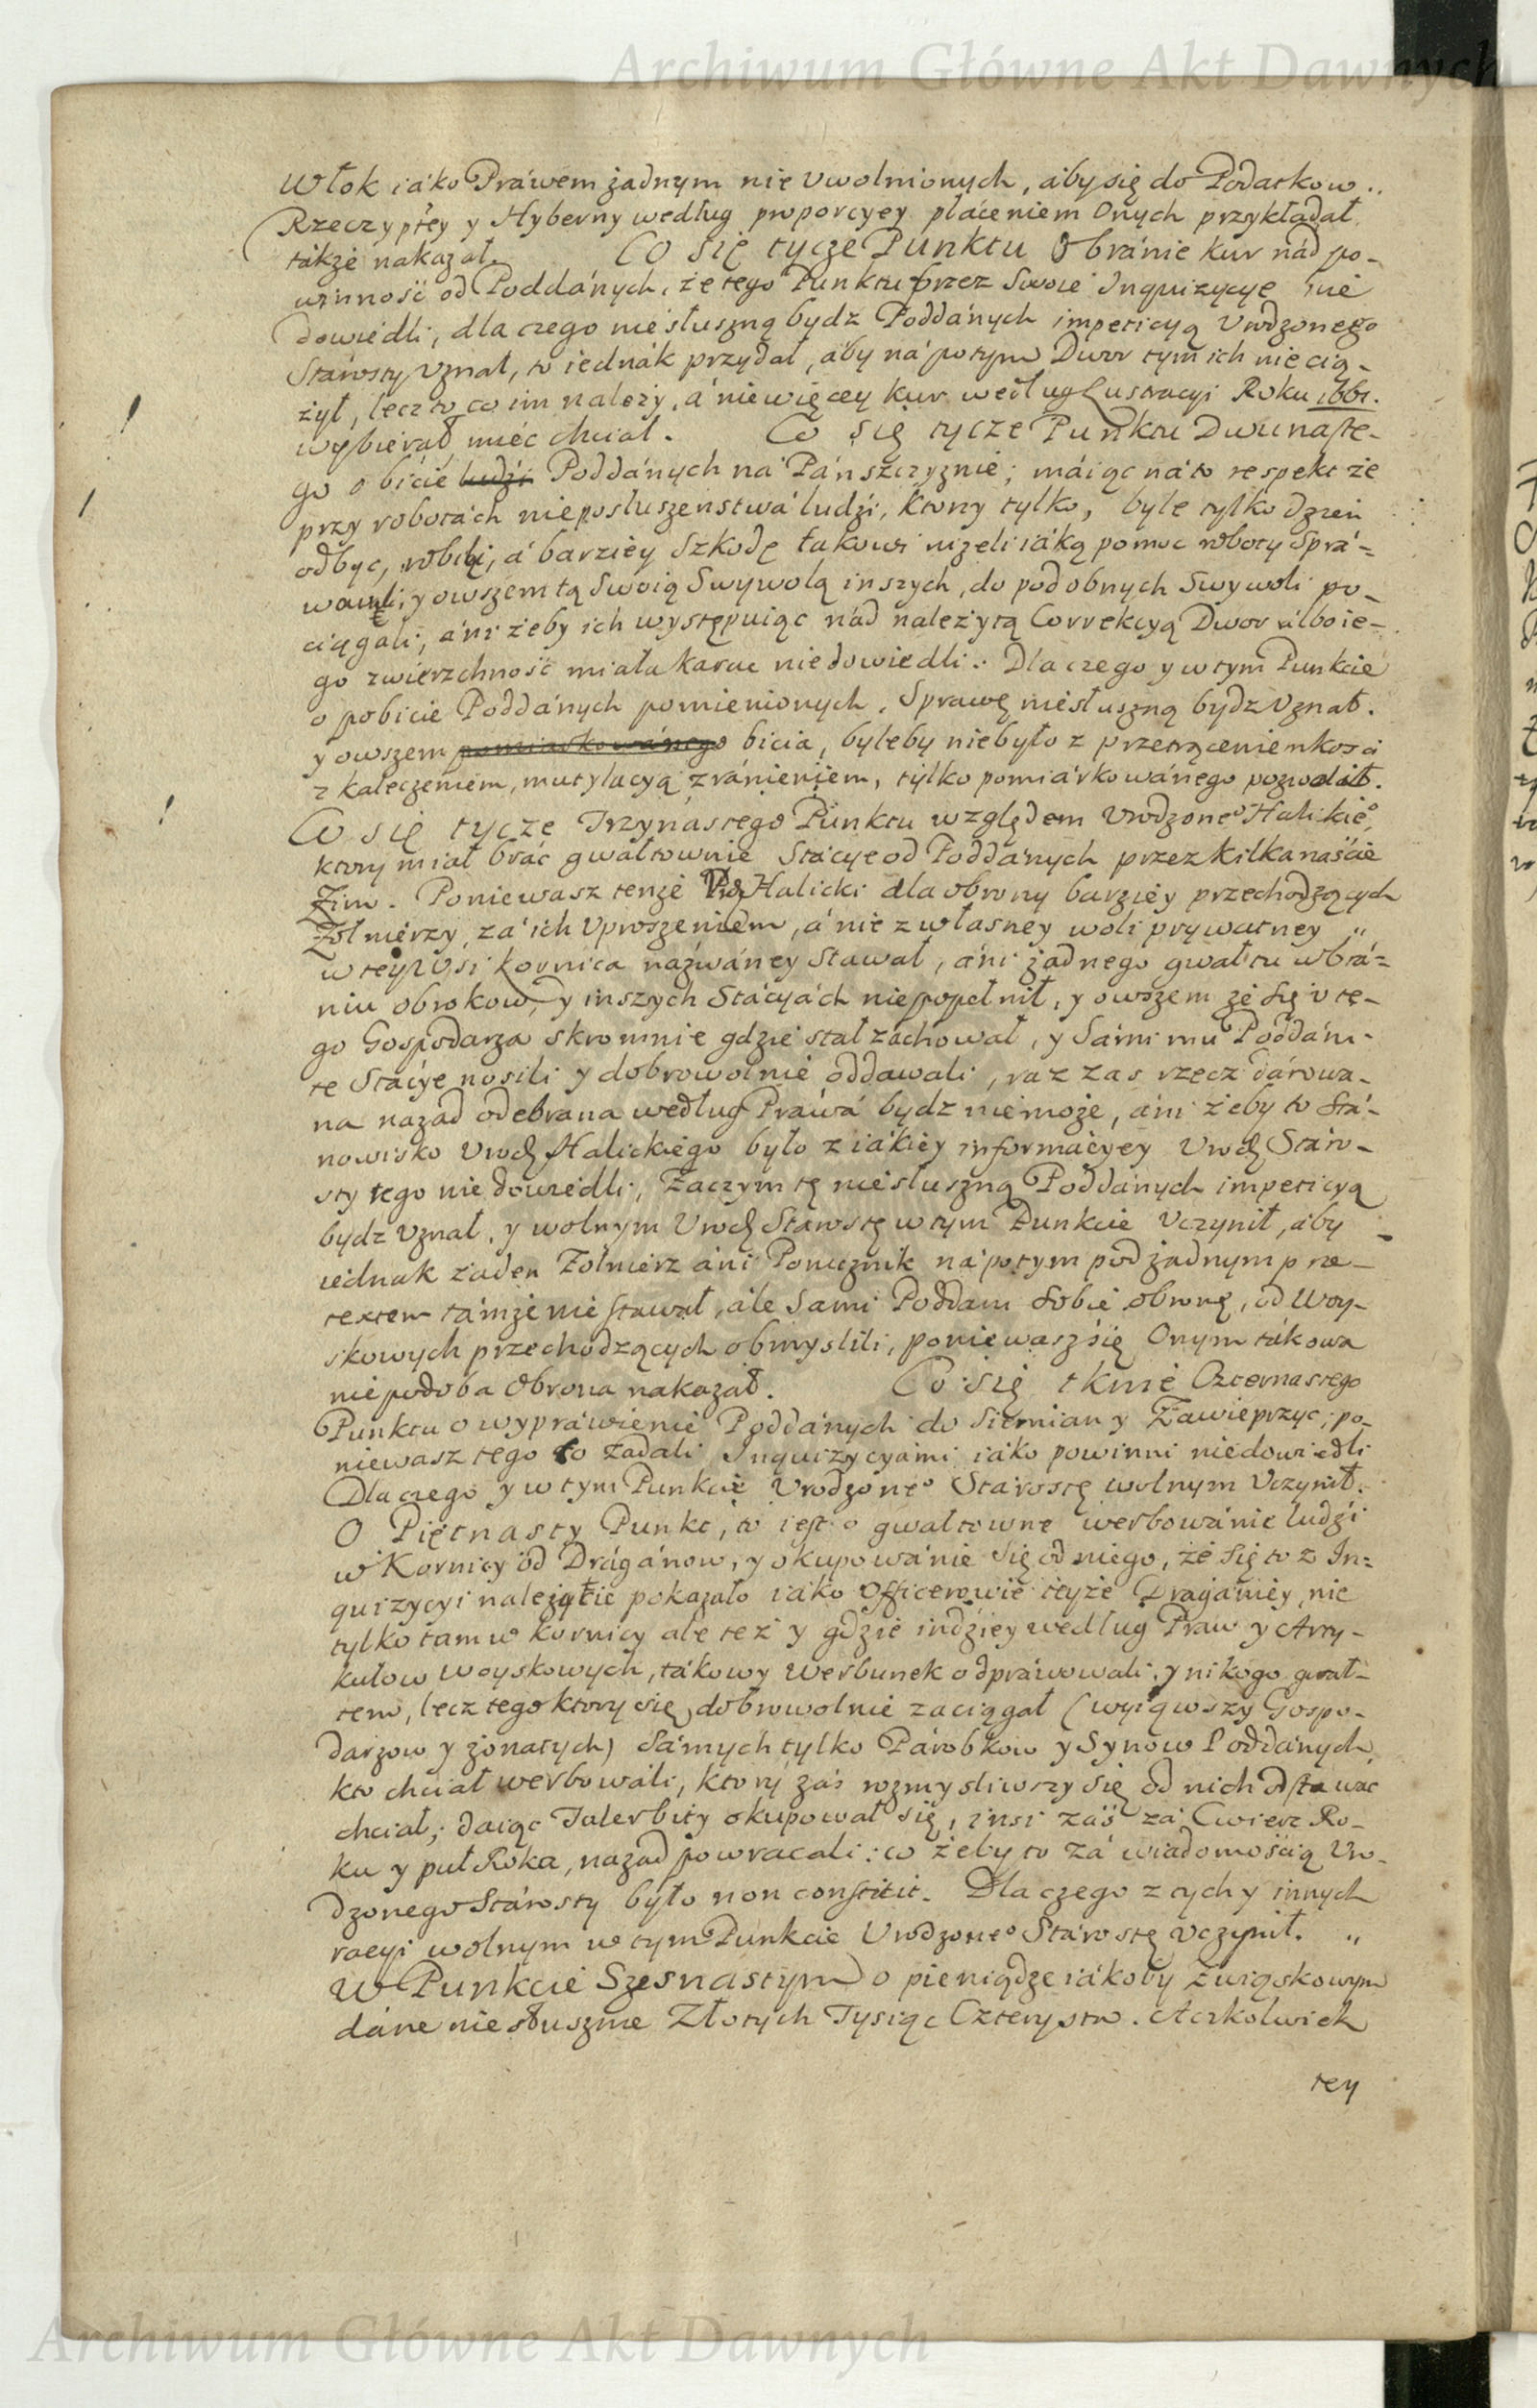 Archiwum Główne Akt Dawnych
Włok iáko Práwem żadnym nie Uwolnionych, aby się do Podatkow
Rzeczyptey y Hyberny według proporcyey płáceniem Onych przykłádał
tákże nakazał. Co się tycze Punktu O bránie kur nád po-
winność od Poddánych, że tego Punktu przez Swoie Inquizycye nie
dowiedli, dla czego niesłuszną bydz Poddánych impeticyą Urodzonego
Stárosty Uznał, to iednák przydał, áby ná potym Dwor tym ich nie cią-
żył, lecz to co im należy, á niewięcey kur według Lustracyi Roku 1661.
wybierał mieć chciał. Co się tycze Punktu Dwunaste-
go o bicie ludźi Poddánych ná Pánszczyznie; máiąc ná to respekt że
przy robotách nieposłuszenstwá ludźi, ktorzy tylko, byle tylko dzień
odbyc, robili, á barziey Szkodę takowi niżeli iáką pomoc roboty Sprá-
wowali, y owszem tą Swoią Swywolą inszych, do podobnych Swywoli po-
ciągáli, áni żeby ich występuiąc nád należytą Correkcyą Dwor álbo ie-
go zwierzchność miała karac niedowiedli. Dla czego y w tym Punkcie
o pobicie Poddánych pomienionych, Sprawę niesłuszną bydz Uznał.
y owszem pomiarkowánego bicia, byleby niebyło z przetrąceniem kosci
z kaleczeniem, mutylacyą, zránieniem, tylko pomiárkowánego pozwolił.
Co się tycze Trzynástego Punktu względem Urodzone° Halickie°,
ktory miał bráć gwałtownie Stácye od Poddánych przez kilkanaście
Zim. Poniewasz tenże Halicki dla obrony barziey przechodzących
Żołnierzy, zá ich Uproszeniem, á nie z własney woli prywatney
w teyże Wsi Kornica názwáney Stawał, áni żadnego gwałtu w brá-
niu obrokow y inszych Stácyách niepopełnił, y owszem że się u te-
go Gospodarza skromnie gdzie stał záchował, y Sámi mu Poddáni
te Stácye nosili y dobrowolnie oddawali, raz zas rzecz dárowa-
na nazad odebrana według Práwá bydz niemoże, áni żeby to Stá-
nowisko Urodz Halickiego było z iákiey informácyey Urodz Stáro-
sty tego nie dowiedli, Zaczym tę niesłuszną Poddánych impeticyą
bydz Uznał, y wolnym Urodz Stárostę w tym Punkcie Uczynił, áby
iednak żaden Żołnierz áni Porucznik ná potym pod żadnym pre-
textem támże nie stawał, ále Sami Poddani Sobie obronę, od Woy-
skowych przechodzących obmyslili, poniewasz się Onym tákowa
niepodoba Obrona nakazał. Co się tknie Czternastego
Punktu o wypráwienie Poddánych do Siemian y Zawieprzyc, po-
niewasz tego co Zadali Inquizycyámi iáko powinni niedowiedli
Dla czego y w tym Punkcie Urodzone° Starostę wolnym Uczynił.
O Piętnasty Punkt, to iest o gwałtowne werbowánie ludźi
w Kornicy od Drágánow, y okupowánie się od niego, że się to z In-
quizycyi należycie pokazáło iáko Officerowie teyże Dragániey nie
tylko tam w Kornicy ale też y gdzie indźiey według Praw y Arty-
kułow Woyskowych, tákowy Werbunek odpráwowali, y nikogo gwał-
tem, lecz tego ktory się dobrowolnie zaciągał (wyiąwszy Gospo-
darzow y żonatych) Sámych tylko Párobkow y Synow Poddánych,
kto chciał werbowáli, ktory záś rozmysliwszy się od nich odstawać
chciał, daiąc Taler bity okupował się, insi záś zá Cwierc Ro-
ku y puł Roka, nazad powracali: co żeby to zá wiádomością Uro-
dzonego Stárosty było non constitit. Dla czego z tych y innych
racyi wolnym w tym Punkcie Urodzone° Stárostę Uczynił.
W Punkcie Szesnastym o pieniądze iákoby związkowym
dáne niesłusznie Złotych Tysiąc Czterysta. Aczkolwiek
tey
Archiwum Główne Akt Dawnych